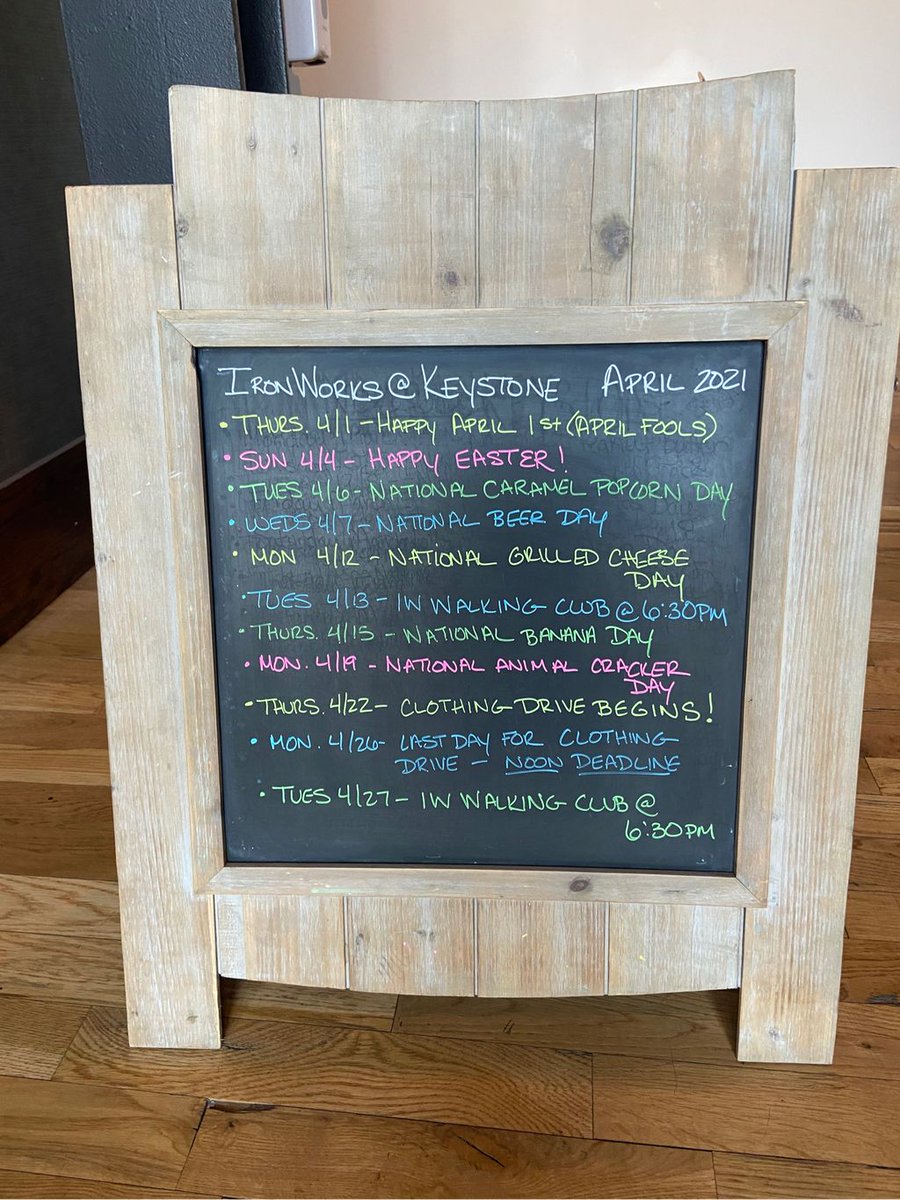 IRONWORKS @ KEYSTONE APRIL 2021
• THURS. 4/1 - HAPPY APRIL 1st (APRIL FOOLS)
• SUN 4/4 - HAPPY EASTER!
• TUES 4/6 - NATIONAL CARAMEL POPCORN DAY
• WEDS 4/7 - NATIONAL BEER DAY
• MON 4/12 - NATIONAL GRILLED CHEESE
DAY
• TUES 4/13 - IW WALKING CLUB @ 6:30PM
• THURS. 4/15 - NATIONAL BANANA DAY
• MON. 4/19 - NATIONAL ANIMAL CRACKER
DAY
• THURS. 4/22 - CLOTHING DRIVE BEGINS!
• MON. 4/26 - LAST DAY FOR CLOTHING
DRIVE - NOON DEADLINE
• TUES 4/27 - IW WALKING CLUB @
6:30PM